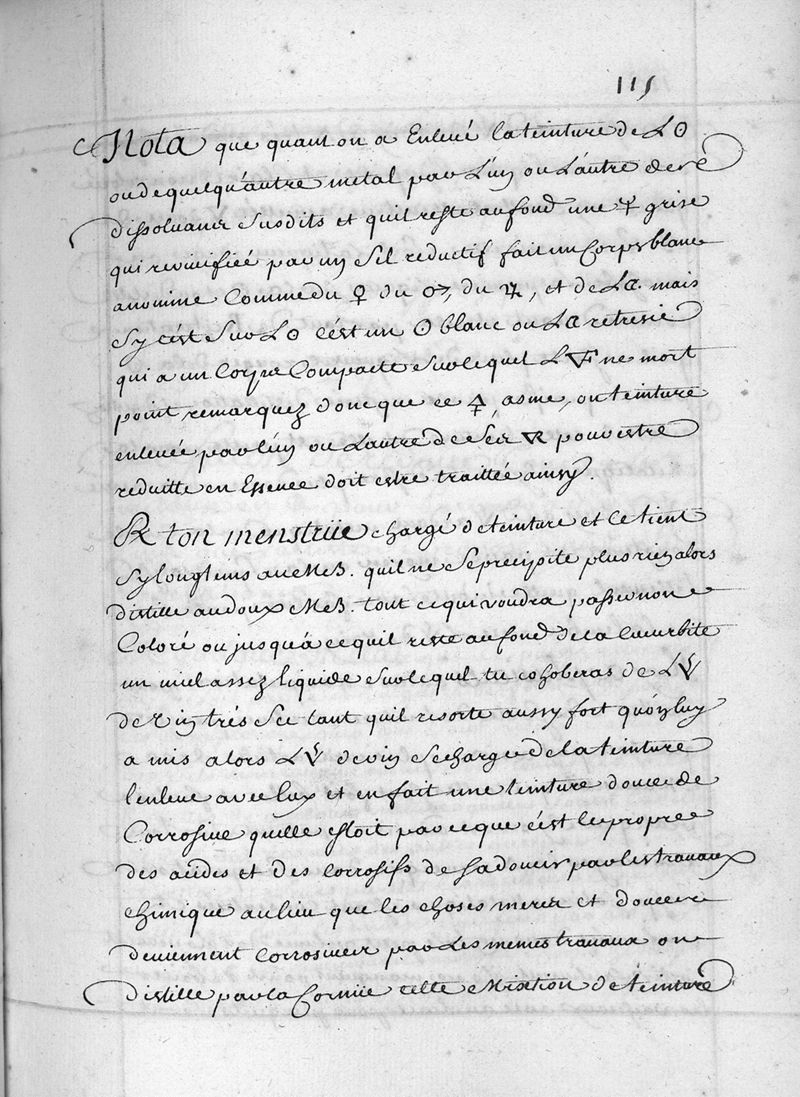 115
Nota que quant on a Enlevé la teinture de L ☉
ou de quelqu'autre metal par L'un ou L'autre de ce
dissolvans susdits et quil reste au fond une 🜍 grise
qui revivifiée par un sel reductif fait un Corps blanc
anonime Comme du ♀ du ♂, du ♃, et de La ☾. mais
sy c'est sur L ☉ c'est un ☉ blanc ou La ☾
qui a un Corps Compacte sur lequel L 🜅 ne mort
point, remarquez donc que ce 🜍, asme, ou teinture
enlevée par l'un ou L'autre de ses pour estre
reduitte en Essence doit estre traittée ainsy.
℞ ton menstrüe chargé de teinture et le tient
sy longtems au MB. quil ne se precipite plus rien alors
distille au doux MB. tout ce qui voudra passer non
Coloré ou jusqu'a ce quil reste au fond de la Cucurbite
un miel assez liquide sur lequel tu cohoberas de L
de vin trés sec tant quil resorte aussy fort qu'on luy
a mis alors L de vin se charge de la teinture
l'enleve avec lux et en fait une teinture douce de
Corrosive quelle estoit par ce que c'est le propre
des acides et des corrosifs de sadoucir par les travaux
chimique au lieu que les choses et douces
deviennent corrosives par Les memes travaux on
distille par la Cornüe cette Mixtion de teinture